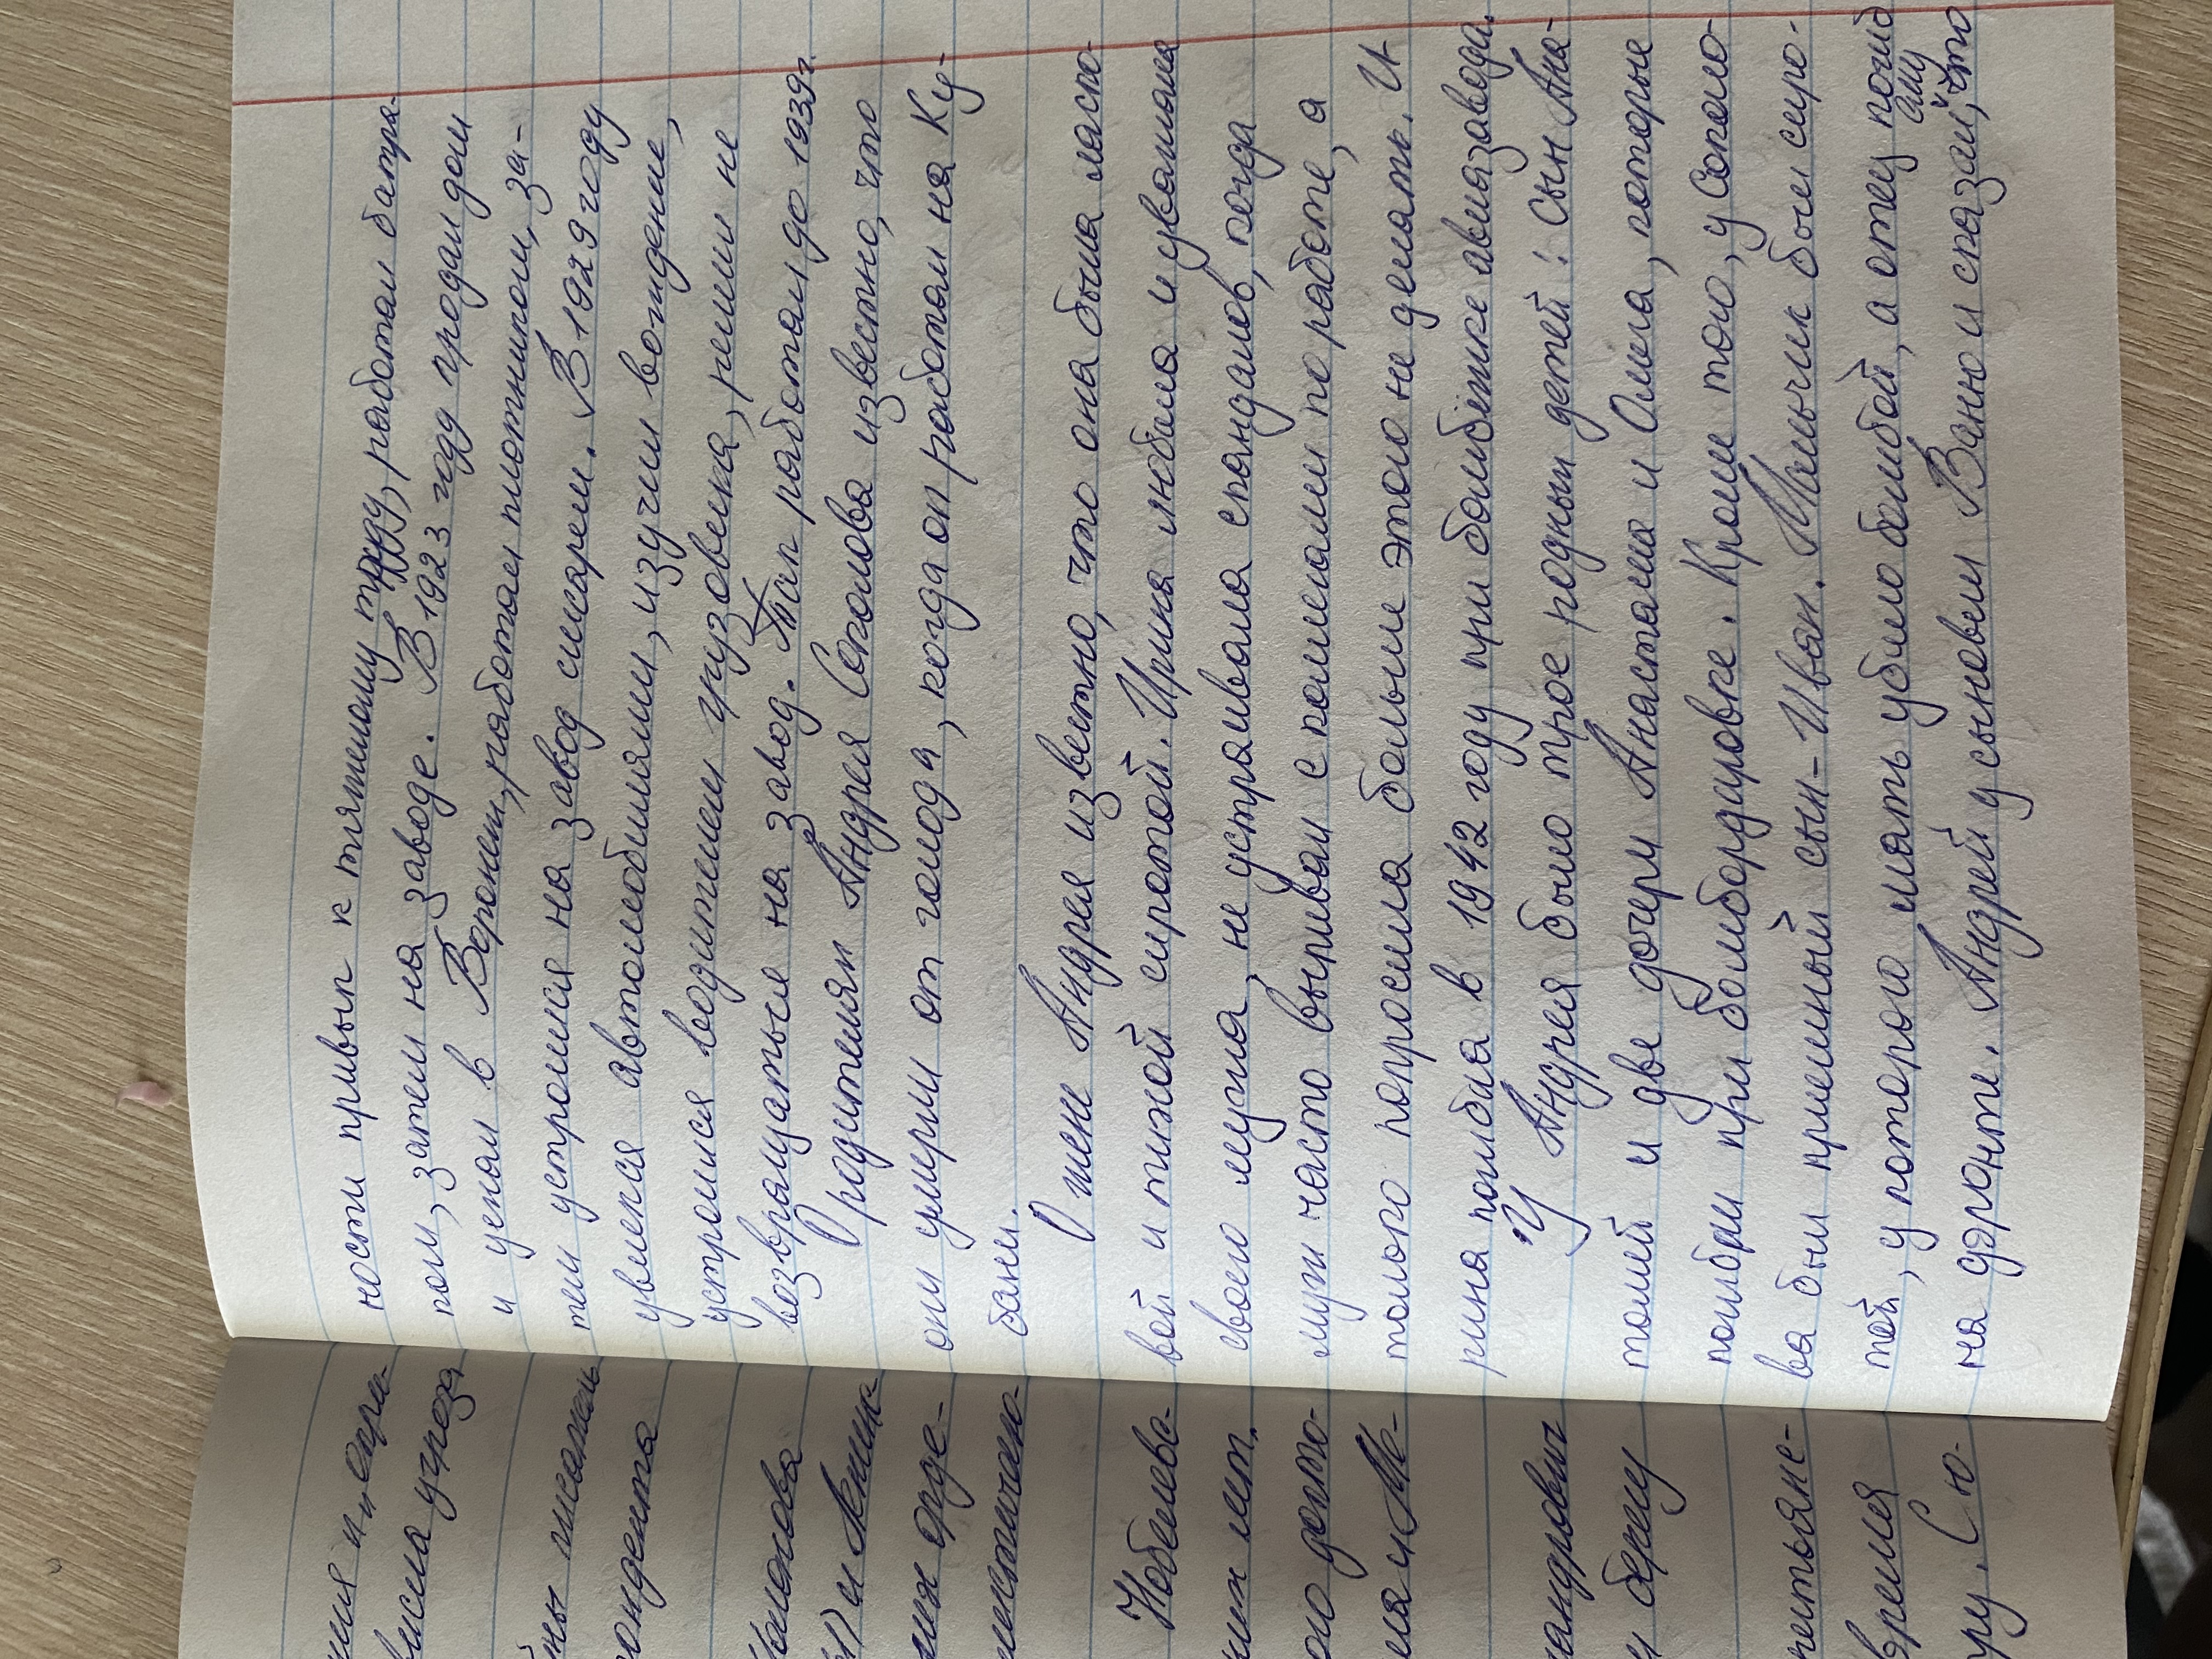 ния и „Сери-
висла угроза
жны писатель
ондента
Каменова
и Ленин-
них орде-
листичено-
Нобелев-
них лет.
ого дого-
ия и Ме-
андрович
и берегу
рестьяне-
время
ру. С ю-
ности привык к тяжелому труду, работал батра-
ком, затем на заводе. В 1923 году продал дом
и уехал в Воронеж, работал плотником, за-
тем устроился на завод слесарем. В 1929 году
увлекся автомобилями, изучил вождение,
устроился водителем грузовика, решил не
возвращаться на завод. Так работал до 1939г.
О родителях Андрея Соколова известно, что
они умерли от голода, когда он работал на Ку-
бани.
О жене Андрея известно, что она была ласко-
вой и тихой сиротой. Ирина любила и уважала
своего мужа, не устраивала скандалов, когда
муж часто выпивал с коллегами по работе, а
только попросила больше этого не делать. И-
рина погибла в 1942 году при бомбёжке авиазавода.
У Андрея было трое родных детей: сын Ана-
толий и две дочери Анастасия и Ольга, которые
погибли при бомбардировке. Кроме того, у Соколо-
ва был приемный сын - Иван. Мальчик был сиро-
той, у которого мать убило бомбой, а отец погиб
на фронте. Андрей усыновил Ваню и сказал ему, что